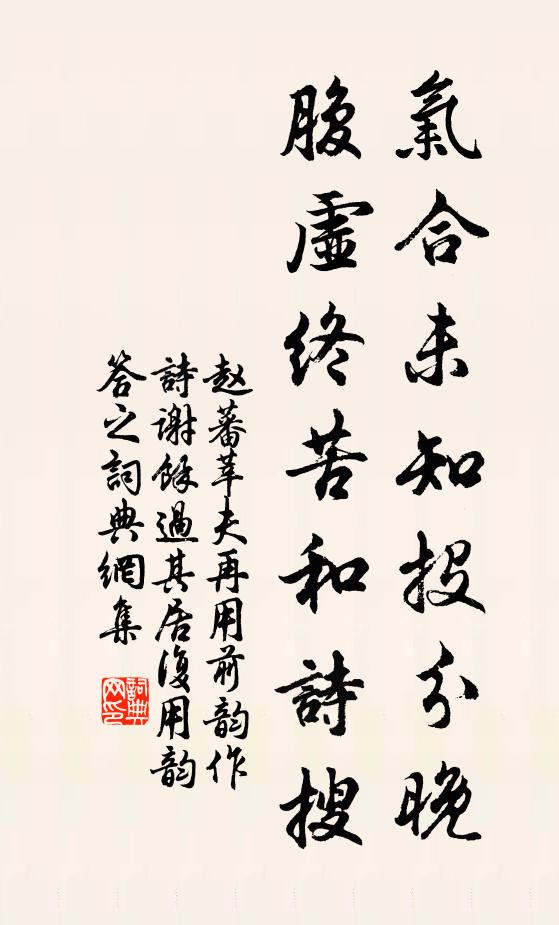 氣合未知投分晚
腹虛終苦和詩搜
赵蕃莘夫再用前韵作
詩謝餘過其居復用韵
答之詞典網集
詞典
网印